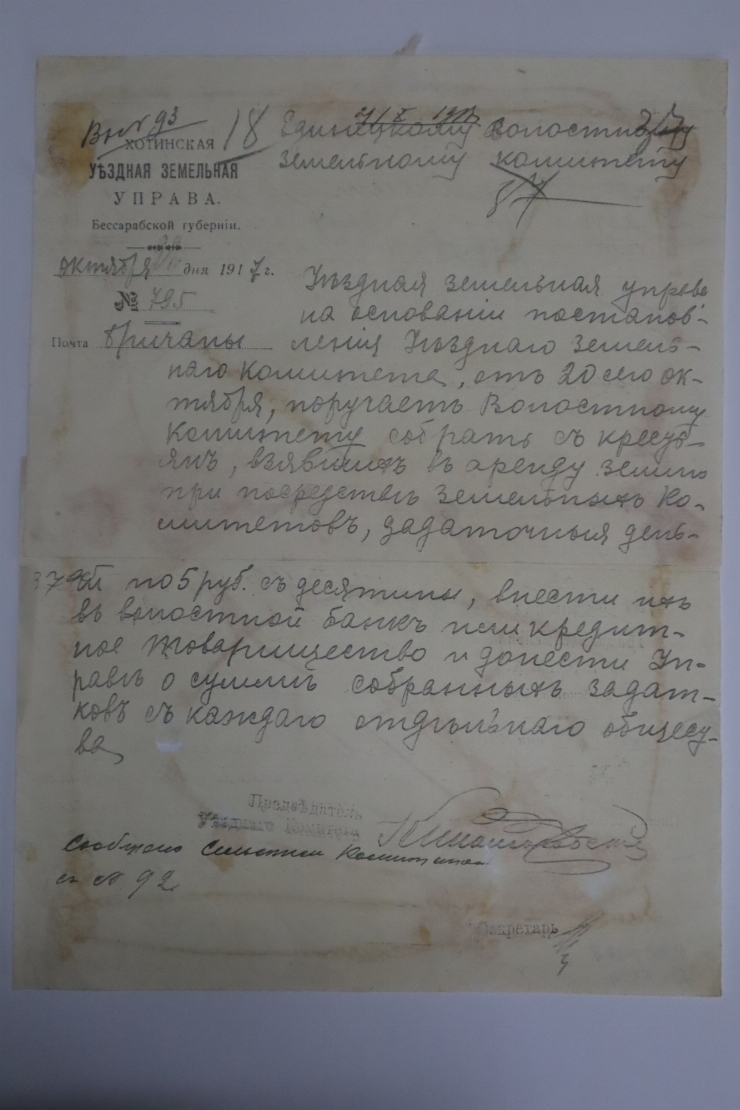 Вх № 93
18
27
ХОТИНСКАЯ
УѢЗДНАЯ ЗЕМЕЛЬНАЯ
УПРАВА.
Бессарабской губерніи.
октября дня 1917 г.
№ 795
Почта Бричаны
Единецкому Волостному
земельному комитету
Уѣздная земельная управа
на основаніи постанов-
ленія Уѣзднаго земель-
наго комитета, отъ 20 сего ок-
тября, поручаетъ Волостному
Комитету собрать съ кресть-
янъ, взявшихъ въ аренду землю
при посредствѣ земельныхъ Ко-
митетовъ, задаточныя день-
ги по 5 руб. съ десятины, внести ихъ
въ волостной банкъ или кредит-
ное товарищество и донести Уп-
равѣ о суммѣ собранныхъ задат-
ковъ съ каждаго отдѣльнаго общест-
ва
Предсѣдатель
Уѣзднаго Комитета
Сообщено Сельским Комитетам
№ 92
Секретарь